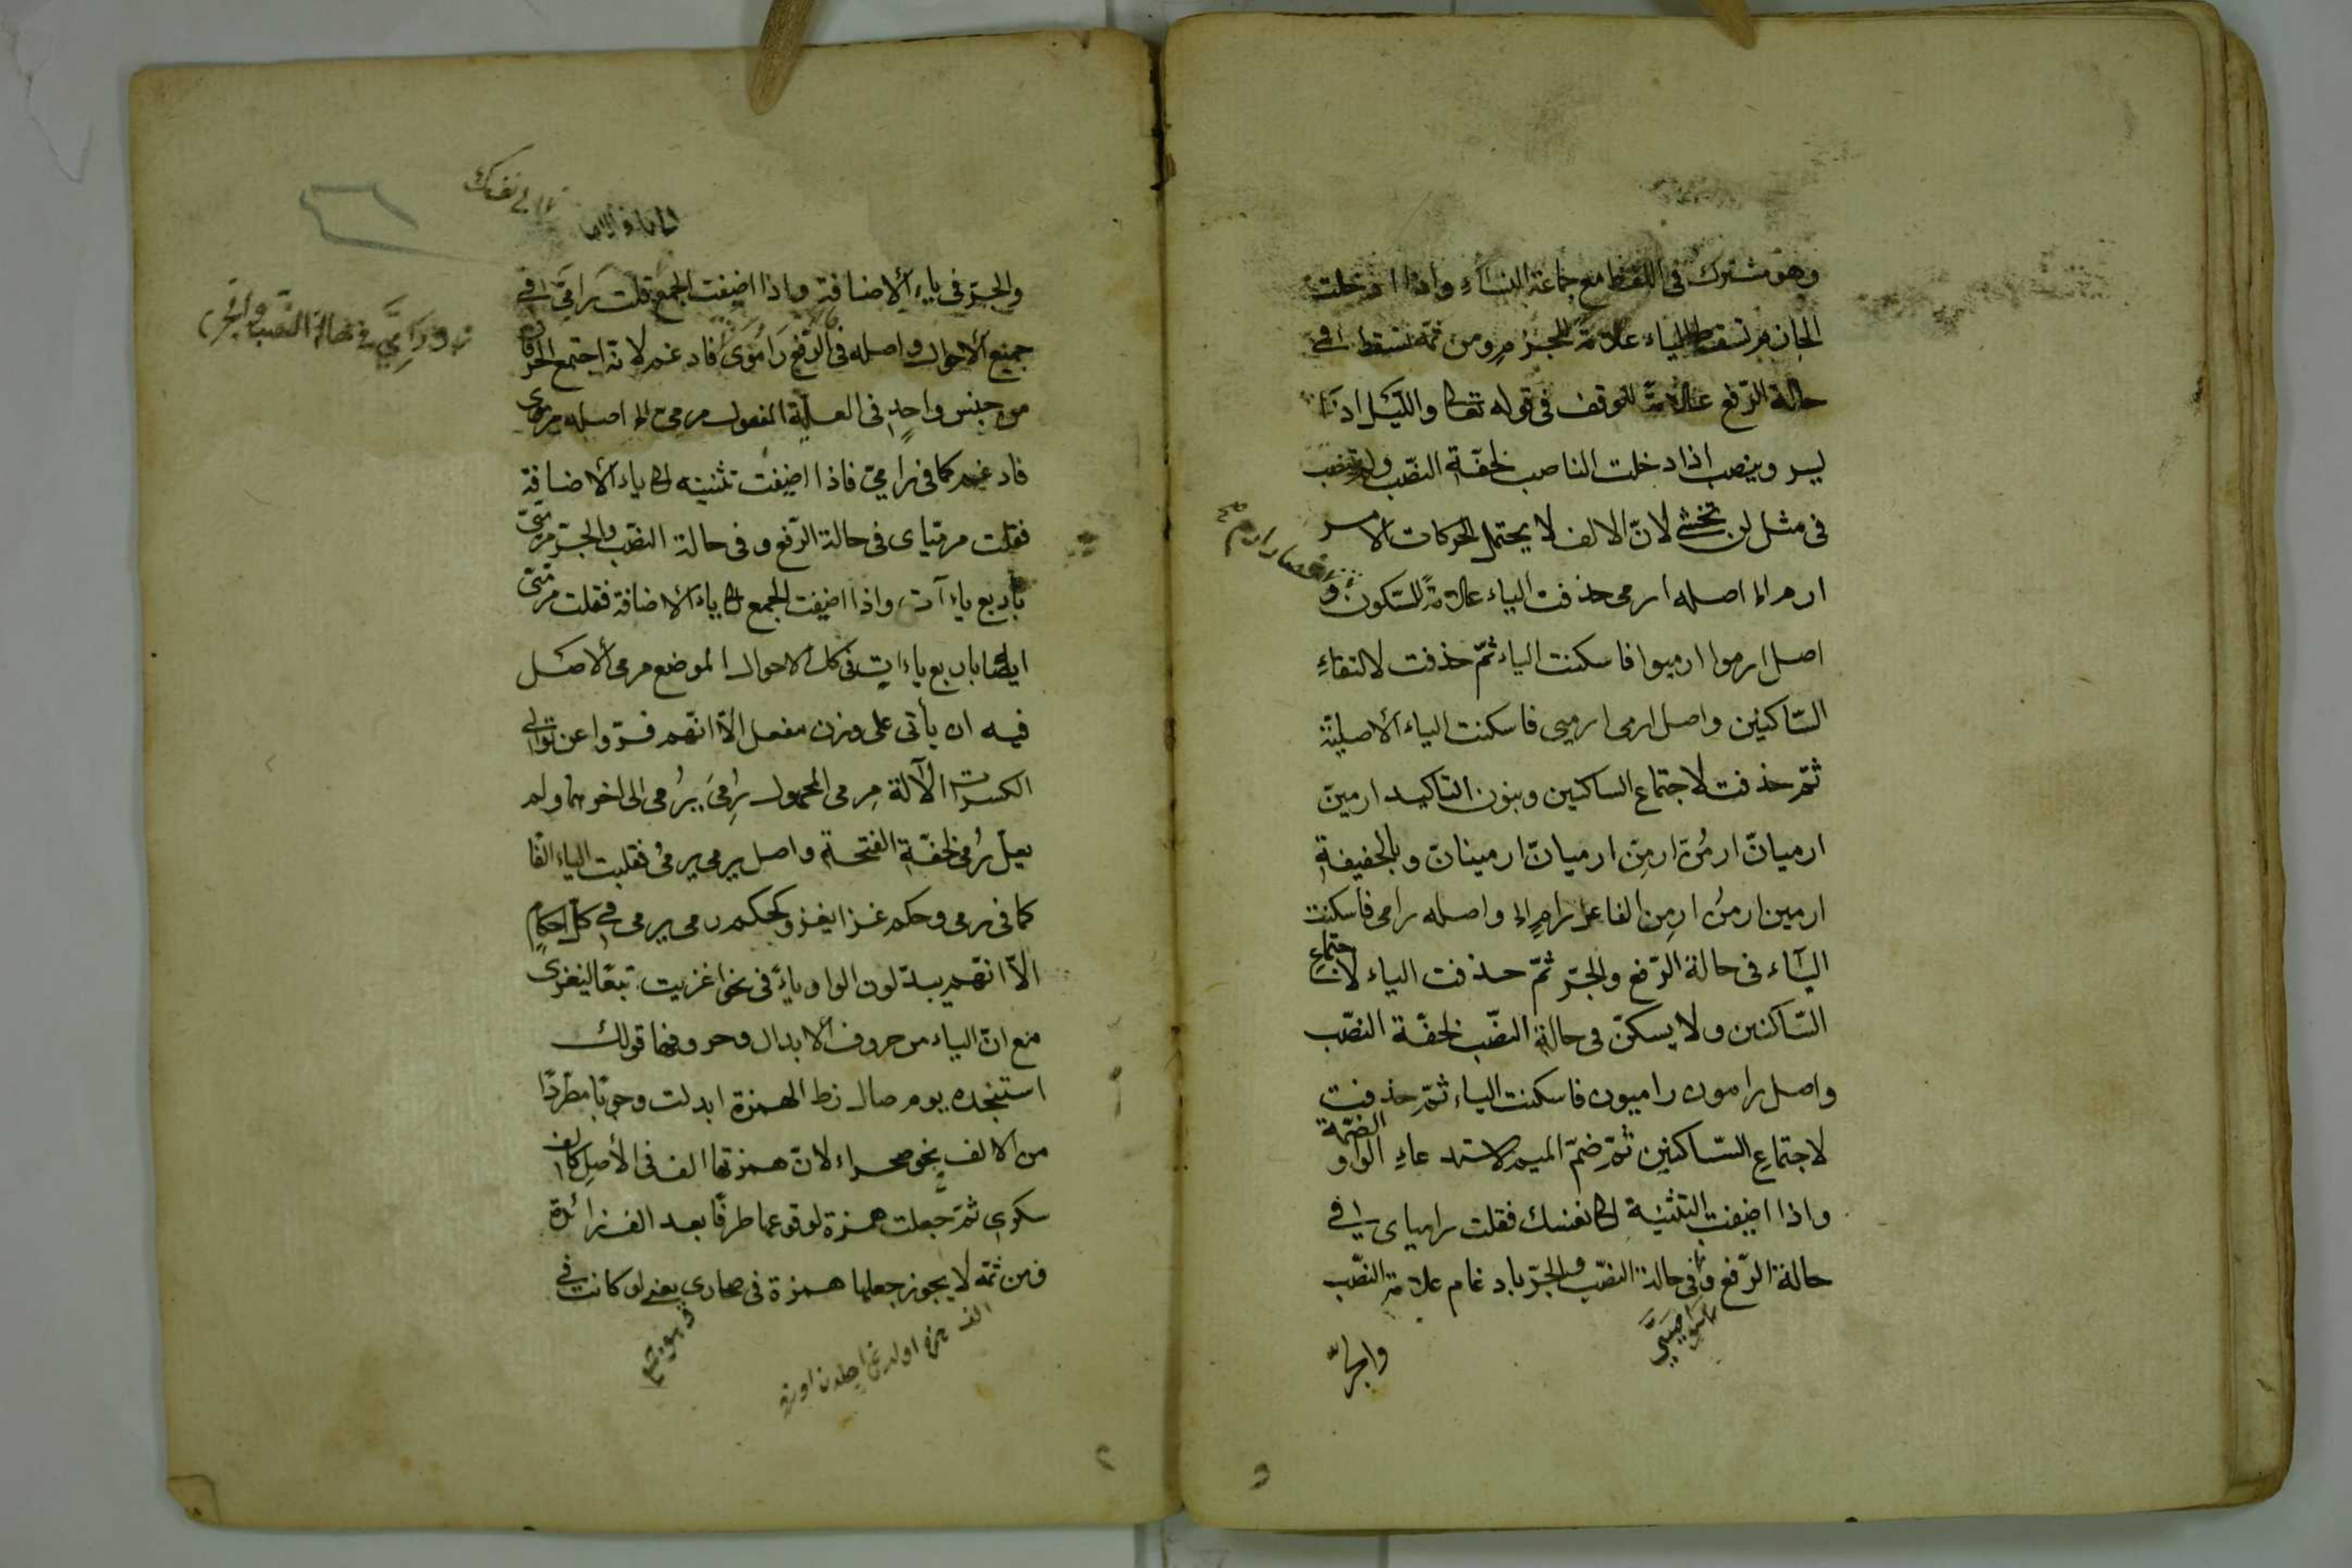 وهو مشترك فى اللفظ مع جماعة النساء واذا ادخلت
الجازم تسقط الياء علامة للجزم ومن ثمّة تسقط فى
حالة الرّفع علامةً للوقف فى قوله تعا والليل اذا
يسر وينصب اذا دخلت الناصب لخفّة النصّب ولم ينصب
فى مثل لن تخشى لانّ الالف لا يحتمل الحركات الامر
ارم الخ اصله ارمى حذفت الياء علامةً للسّكون و
اصل ارموا ارميوا فاسكنت الياء ثمّ حذفت لالتقاءِ
السّاكنين واصل ارمى ارميى فاسكنت الياء الأصليّة
ثمّ حذفت لاجتماع الساكنين وبنون التاكيد ارمينّ
ارميانّ ارمُنّ ارمِنّ ارميانّ ارمينانّ وبالخفيفة
ارمين ارمُن ارمِن الفاعل رامٍ الخ واصله رامى فاسكنت
اليآء فى حالة الرّفع والجرّ ثمّ حذفت الياء لاجتماع
السّاكنين ولا يسكنّ فى حالة النصّب لخفّة النصّب
واصل رامون راميون فاسكنت الياء ثمّ حذفت
لاجتماعِ السّاكنين ثمّ ضمّ الميم لاستدعاءِ الواو الضمّة
واذا اضيفت التثنية الى نفسك فقلت رامياى فى
حالة الرّفع وفى حالة النصّب والجرّ بادغام علامة النصّب
والجرّ
والجرّ فى ياء الأضافة واذا اضيفت الجمع قلت رامىّ فى
جميع الأحوال واصله فى الرّفع رَامُوىَ فادغم لانّه اجتمع الحرفان
من جنس واحدٍ فى العلّية المفعول مرمىّ الخ اصله مرموى
فادغم كما فى رامىّ فاذا اضيفت تثنيته الى ياء الأضافة
فقلت مرميّاى فى حالة الرّفع وفى حالة النصّب والجرّ مرميّىّ
بأربع ياءآت واذا اضيفت الجمع الى ياء الأضافة فقلت مرميّىّ
ايضا باربع ياءات فى كل الاحوال الموضع مرمى الأصل
فيه ان يأتى على وزن مفعل الّا انّهم فرّوا عن توالى
الكسرات الألآلة مِرمى المجهول رُمِىَ يُرمى الى اخرهما ولم
يعلّ رُمى لخفّة الفتحة واصل يرمى يرمىُ فقلبت الياء الفًا
كما فى رمى وحكم غزا يغزو كحكم رمى يرمى فى كلّ احكامٍ
الّا انّهم يبدّلون الواو ياءً فى نحو اغزيت تبعًا ليغزى
مع انّ الياء من حروف الأبدال وحروفها قولك
استنجده يوم صال زط الهمزة ابدلت وجوبًا مطّردًا
من الالف نحو صحراء لانّ همزتها الف فى الأصل كالف
سكرى ثمّ جعلت همزة لوقوعها طرفًا بعد الف زائدة
ومن ثمّة لا يجوز جعلها همزة فى صحارى يعنى لو كانت فى
ورَامِىَّ فى حالة النّصب والجرّ